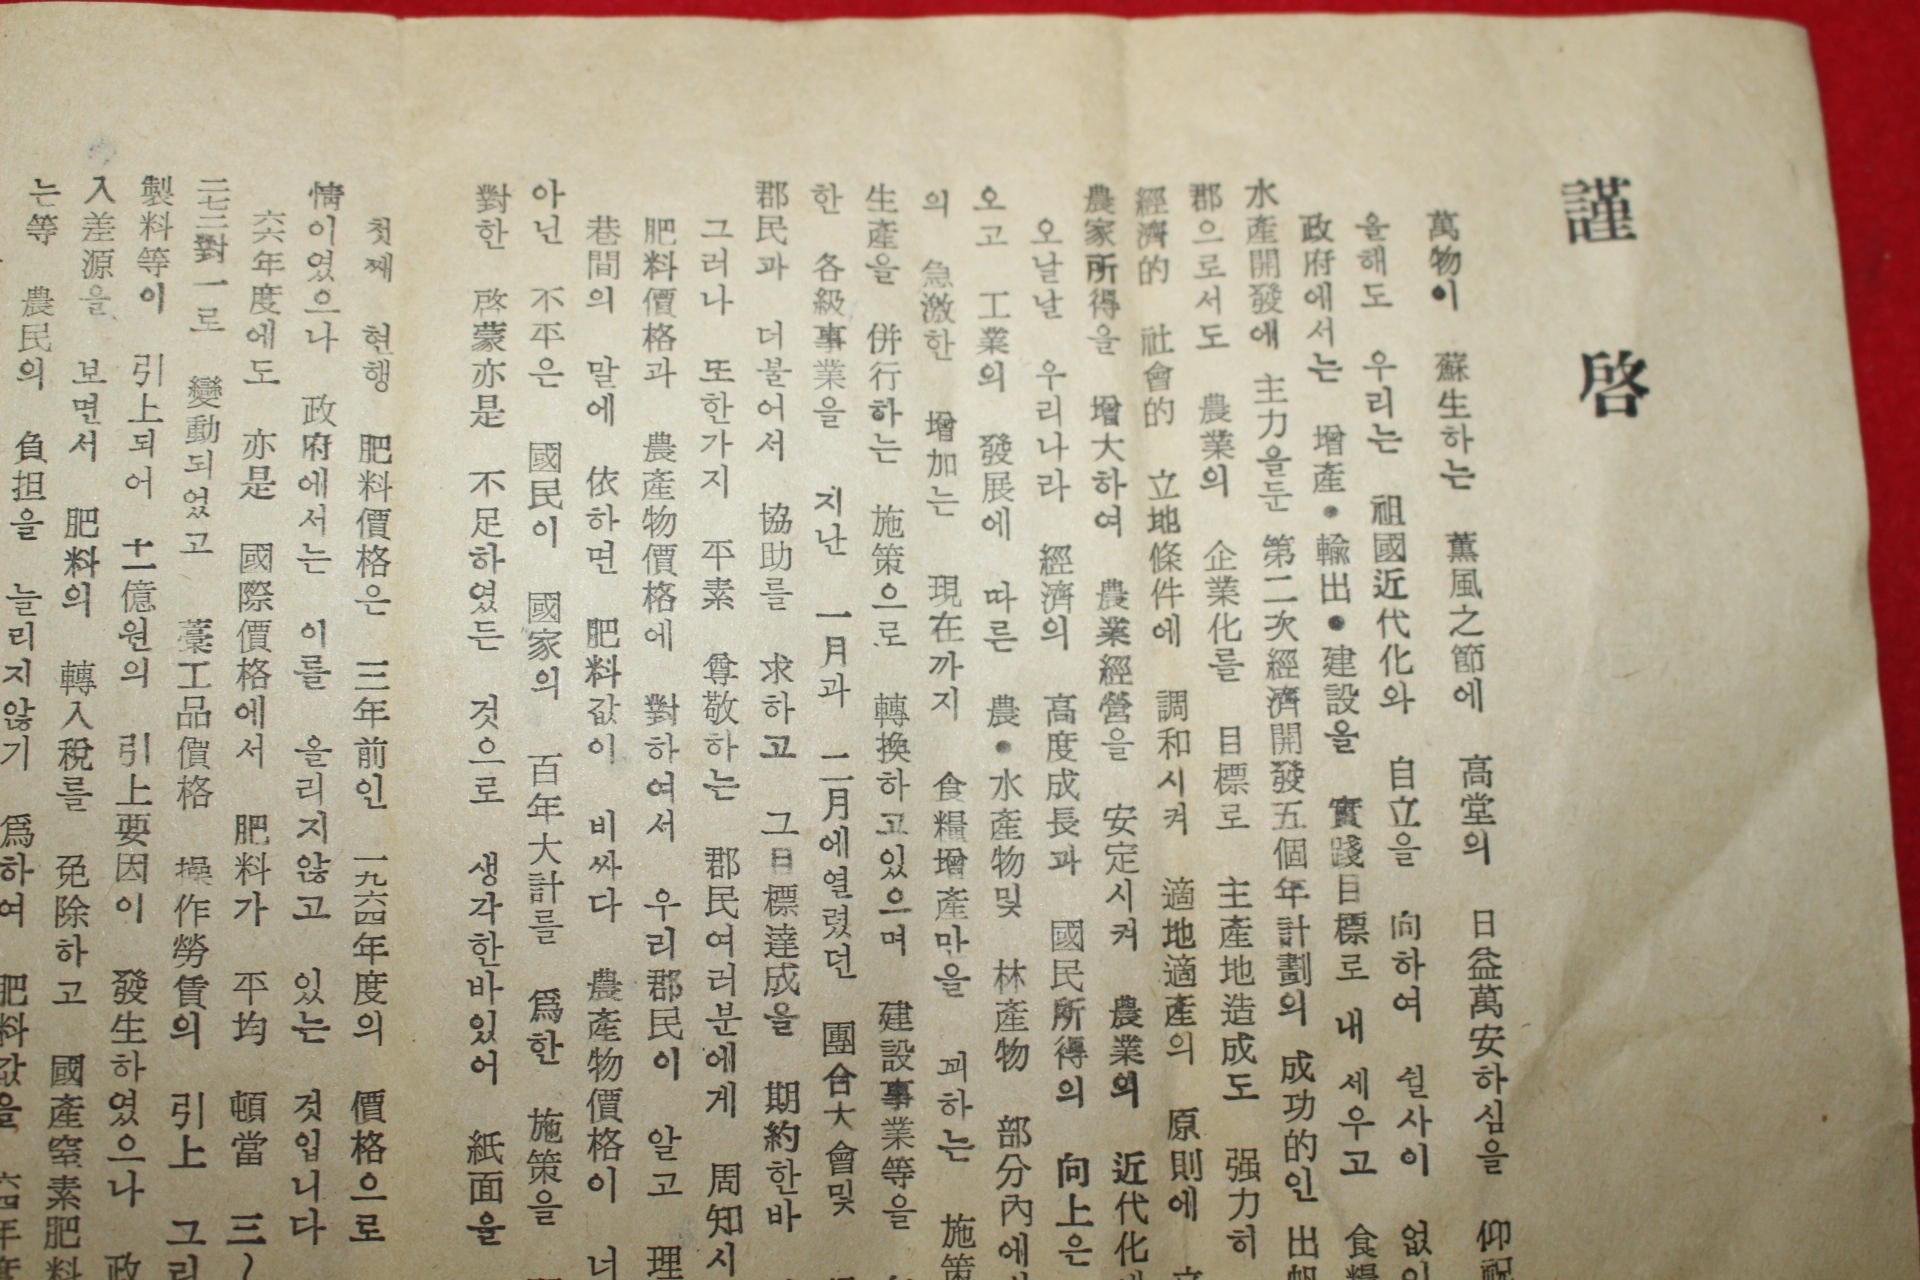 謹啓
萬物이 蘇生하는 薰風之節에 高堂의 日益萬安하심을 仰祝
올해도 우리는 祖國近代化와 自立을 向하여 쉴사이 없이
政府에서는 增產•輸出•建設을 實踐目標로 내 세우고 食糧
水產開發에 主力을둔 第二次經濟開發五個年計劃의 成功的인 出帆
郡으로서도 農業의 企業化를 目標로 主產地造成도 强力히
經濟的 社會的 立地條件에 調和시켜 適地適產의 原則에 立
農家所得을 增大하여 農業經營을 安定시켜 農業의 近代化
오날날 우리나라 經濟의 高度成長과 國民所得의 向上은
오고 工業의 發展에 따른 農•水產物및 林產物 部分內에
의 急激한 增加는 現在까지 食糧增產만을 꾀하는 施策
生產을 併行하는 施策으로 轉換하고있으며 建設事業等을
한 各級事業을 지난 一月과 二月에열렸던 團合大會및
郡民과 더불어서 協助를 求하고 그目標達成을 期約한바
그러나 또한가지 平素 尊敬하는 郡民여러분에게 周知시
肥料價格과 農產物價格에 對하여서 우리郡民이 알고 理
巷間의 말에 依하면 肥料값이 비싸다 農產物價格이 너
아닌 不平은 國民이 國家의 百年大計를 爲한 施策을
對한 啓蒙亦是 不足하였든 것으로 생각한바있어 紙面을
첫째 현행 肥料價格은 三年前인 一九六四年度의 價格으로
情이였으나 政府에서는 이를 올리지않고 있는 것입니다
六六年度에도 亦是 國際價格에서 肥料가 平均 頓當 三〜
二七二對一로 變動되었고 藁工品價格 操作勞賃의 引上 그리
製料等이 引上되어 十一億원의 引上要因이 發生하였으나 政
入差源을 보면서 肥料의 轉入稅를 免除하고 國產窒素肥料
는等 農民의 負担을 늘리지않기 爲하여 肥料값을 六四年度